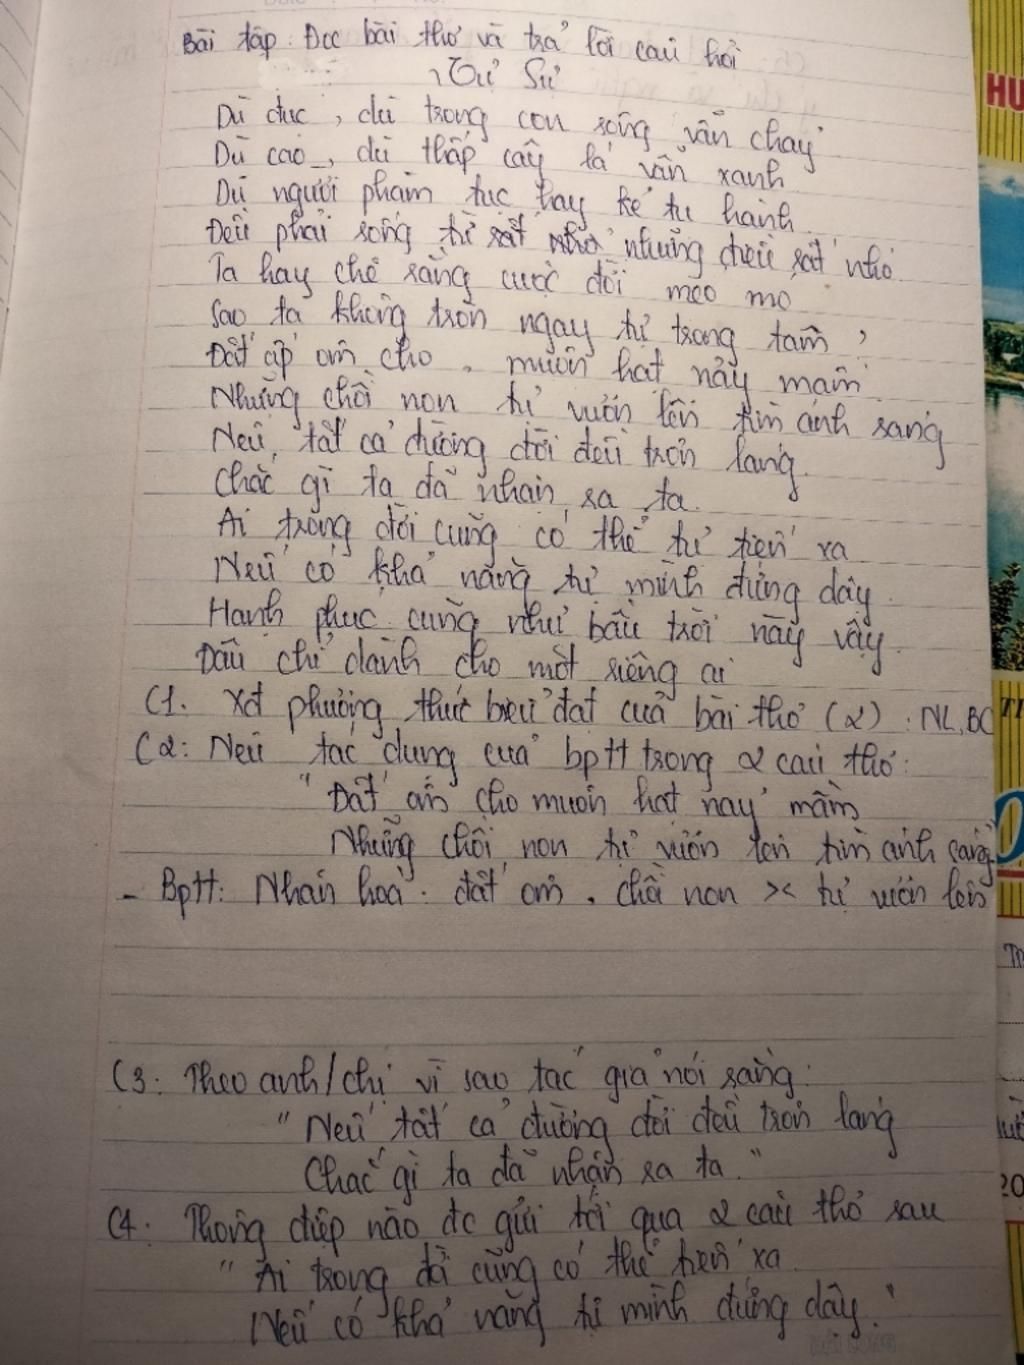 Bài tập: Đọc bài thơ và trả lời câu hỏi
Tự Sự
Dù đục, dù trong con sông vẫn chảy
Dù cao, dù thấp cây lá vẫn xanh
Dù người phàm tục hay kẻ tu hành
Đều phải sống từ những điều rất nhỏ.
Ta hay chê rằng cuộc đời méo mó
Sao ta không tròn ngay tự trong tâm?
Đất ấp ôm cho muôn hạt nảy mầm
Những chồi non tự vươn lên tìm ánh sáng
Nếu tất cả đường đời đều trơn láng
Chắc gì ta đã nhận ra ta
Ai trong đời cũng có thể tự tiến xa
Nếu có khả năng tự mình đứng dậy.
Hạnh phúc cũng như bầu trời này vậy
Đâu chỉ dành cho một riêng ai
C1. Xđ phương thức biểu đạt của bài thơ (2): NL, BC
C2: Nêu tác dụng của bptt trong 2 câu thơ:
"Đất ôm cho muôn hạt nảy mầm
Những chồi non tự vươn lên tìm ánh sáng
- Bptt: Nhân hoá: đất ôm, chồi non >< tự vươn lên
C3: Theo anh/chị vì sao tác giả nói rằng:
"Nếu tất cả đường đời đều trơn láng
Chắc gì ta đã nhận ra ta."
C4: Thông điệp nào đc gửi tới qua 2 câu thơ sau
"Ai trong đời cũng có thể tiến xa
Nếu có khả năng tự mình đứng dậy."
HU